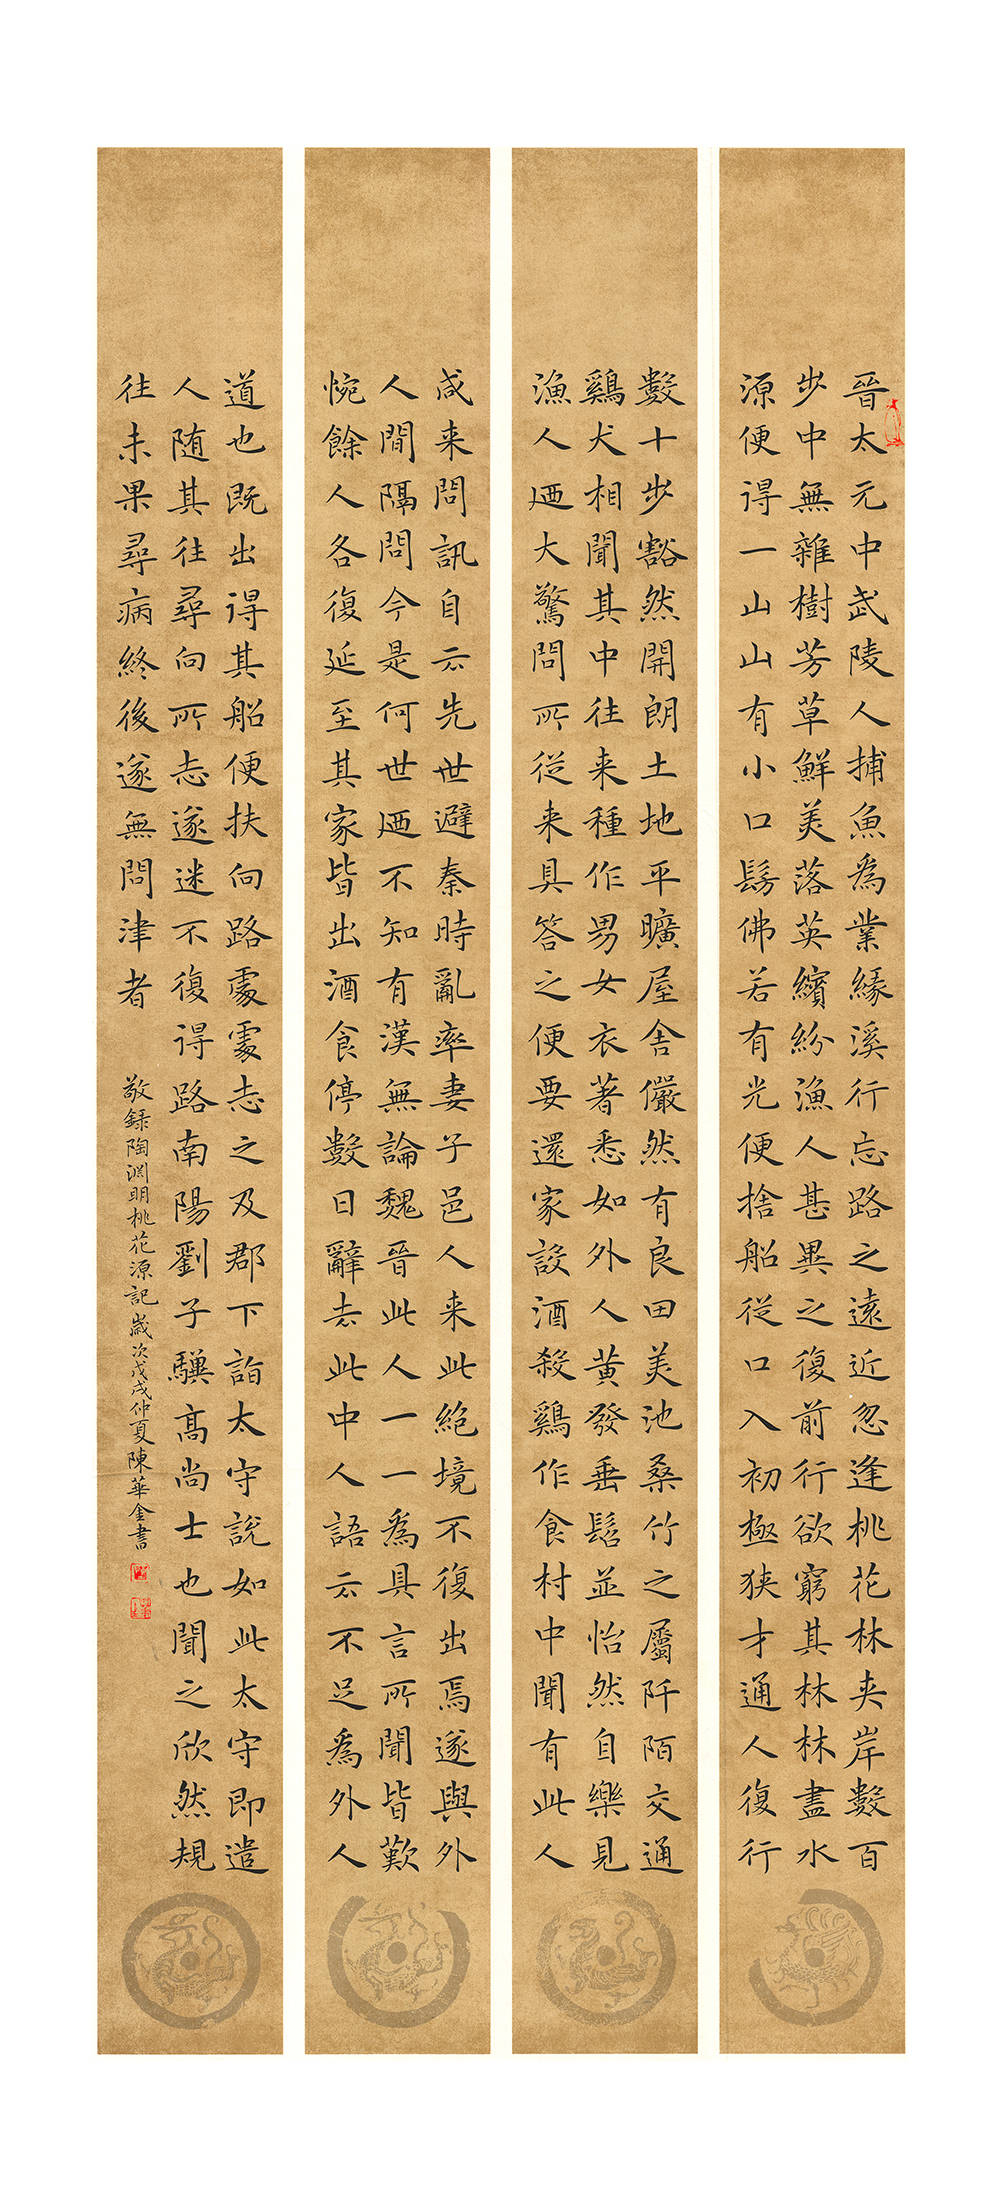 晉太元中武陵人捕魚為業緣溪行忘路之遠近忽逢桃花林夾岸數百
步中無雜樹芳草鮮美落英繽紛漁人甚異之復前行欲窮其林林盡水
源便得一山山有小口髣佛若有光便捨船從口入初極狹才通人復行
數十步豁然開朗土地平曠屋舍儼然有良田美池桑竹之屬阡陌交通
鷄犬相聞其中往来種作男女衣著悉如外人黃發垂髫並怡然自樂見
漁人迺大驚問所從来具答之便要還家設酒殺鷄作食村中聞有此人
咸来問訊自云先世避秦時亂率妻子邑人来此絕境不復出焉遂與外
人間隔問今是何世迺不知有漢無論魏晉此人一一為具言所聞皆歎
惋餘人各復延至其家皆出酒食停數日辭去此中人語云不足為外人
道也既出得其船便扶向路處處志之及郡下詣太守說如此太守即遣
人随其往尋向所志遂迷不復得路南陽劉子驥高尚士也聞之欣然規
往未果尋病終後遂無問津者
敬錄陶淵明桃花源記歲次戊戌仲夏陳華金書